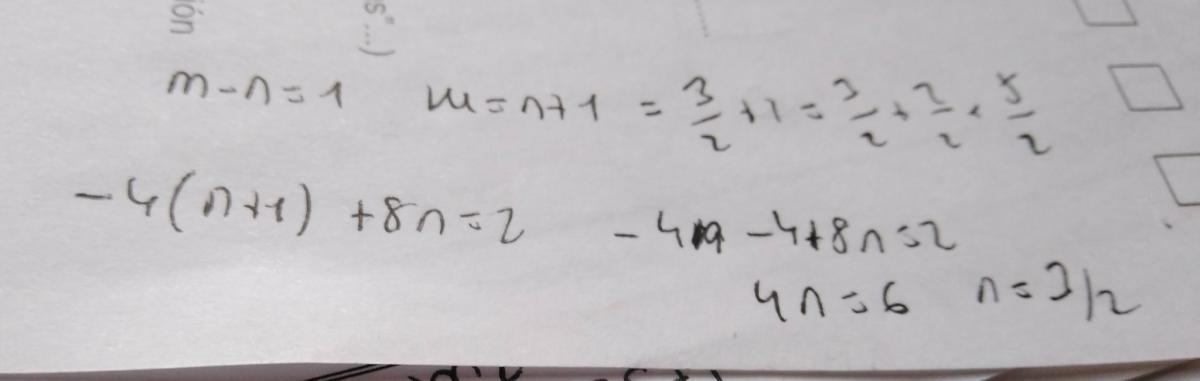 ión
s"...)
m-n=1 m=n+1 = 3/2 +1 = 3/2 + 2/2 = 5/2
-4(n+1) +8n=2 -4n -4+8n=2
4n=6 n=3/2